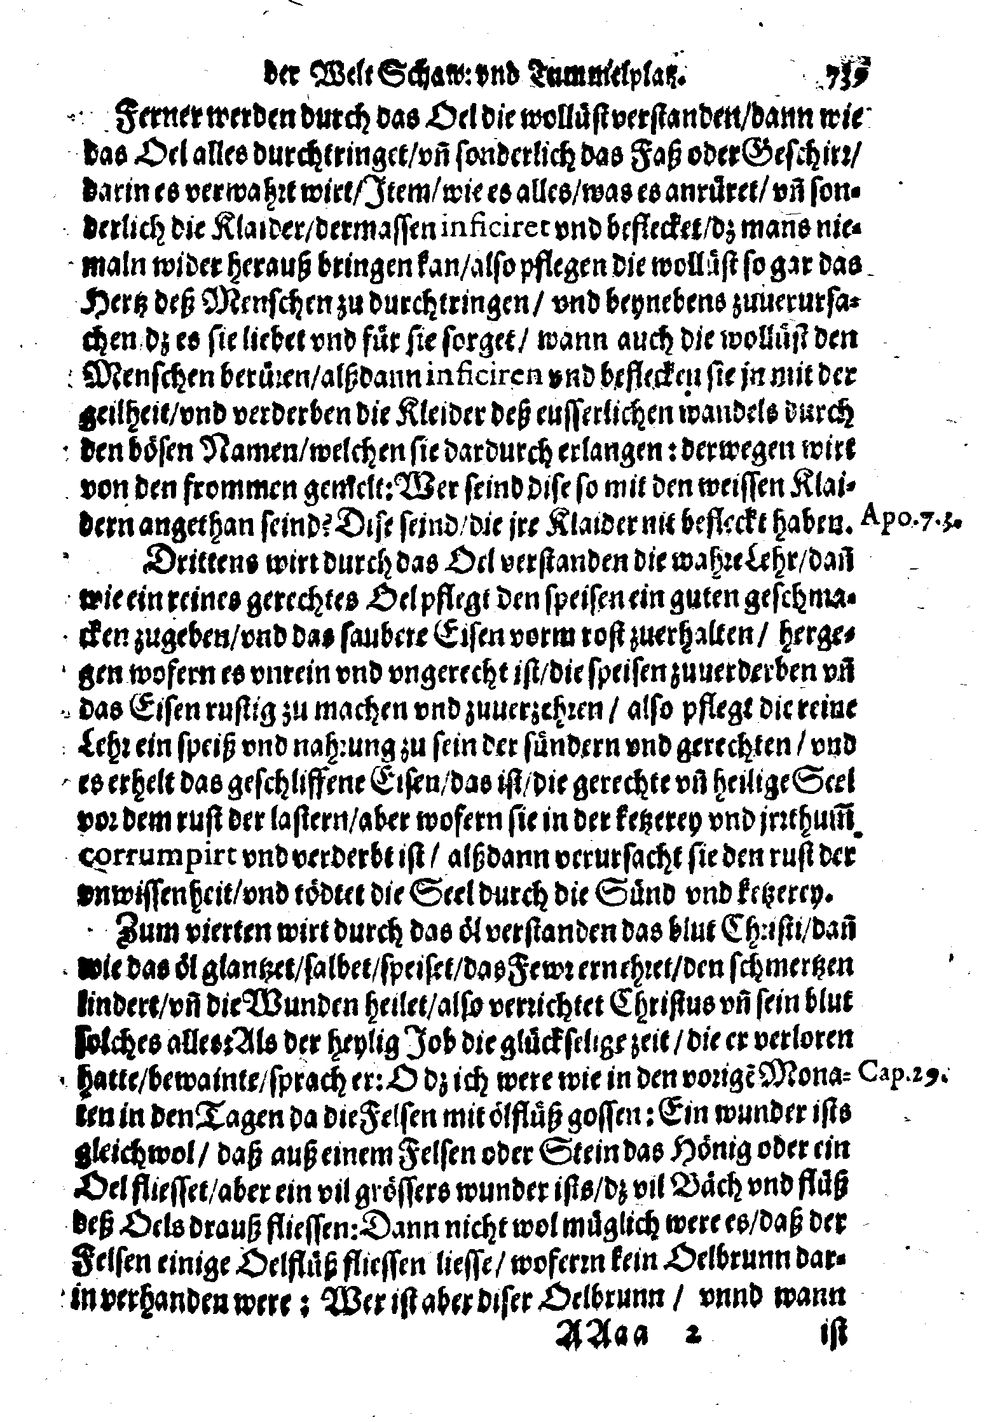 der Welt Schaw: vnd Tummelplatz. 739
Ferner werden durch das Oel die wollüst verstanden/dann wie
das Oel alles durchtringet/vñ sonderlich das Faß oder Geschirr/
darin es verwahrt wirt/Item/wie es alles/was es anrüret/vñ son-
derlich die Klaider/dermassen inficiret vnd beflecket/dz mans nie-
maln wider herauß bringen kan/also pflegen die wollüst so gar das
Hertz deß Menschen zu durchtringen/ vnd beynebens zuuerursa-
chen dz es sie liebet vnd für sie sorget/ wann auch die wollüst den
Menschen berüren/alßdann inficiren vnd beflecken sie jn mit der
geilheit/vnd verderben die Kleider deß eusserlichen wandels durch
den bösen Namen/welchen sie dardurch erlangen: derwegen wirt
von den frommen gemelt: Wer seind dise so mit den weissen Klai-
dern angethan seind? Dise seind/die jre Klaider nit befleckt haben. Apo.7.3.
Drittens wirt durch das Oel verstanden die wahre Lehr/dañ
wie ein reines gerechtes Oel pflegt den speisen ein guten geschma-
cken zugeben/vnd das saubere Eisen vorm rost zuerhalten/ herge-
gen wofern es vnrein vnd vngerecht ist/die speisen zuuerderben vñ
das Eisen rustig zu machen vnd zuuerzehren/ also pflegt die reine
Lehr ein speiß vnd nahrung zu sein der sündern vnd gerechten/ vnd
es erhelt das geschliffene Eisen/das ist/die gerechte vñ heilige Seel
vor dem rust der lastern/aber wofern sie in der ketzerey vnd jrrthum̃
corrumpirt vnd verderbt ist/ alßdann verursacht sie den rust der
vnwissenheit/vnd tödtet die Seel durch die Sünd vnd ketzerey.
Zum vierten wirt durch das öl verstanden das blut Christi/dañ
wie das öl glantzet/salbet/speiset/das Fewr ernehret/den schmertzen
lindert/vñ die Wunden heilet/also verrichtet Christus vñ sein blut
solches alles: Als der heylig Job die glückselige zeit/die er verloren
hatte/bewainte/sprach er: O dz ich were wie in den vorigẽ Mona- Cap.29.
ten in den Tagen da die Felsen mit ölflüß gossen: Ein wunder ists
gleichwol/ daß auß einem Felsen oder Stein das Hönig oder ein
Oel fliesset/aber ein vil grössers wunder ists/dz vil Bäch vnd flüß
deß Oels drauß fliessen: Dann nicht wol müglich were es/daß der
Felsen einige Oelflüß fliessen liesse/ wofern kein Oelbrunn dar-
in verhanden were: Wer ist aber diser Oelbrunn/ vnnd wann
AAaa 2 ist